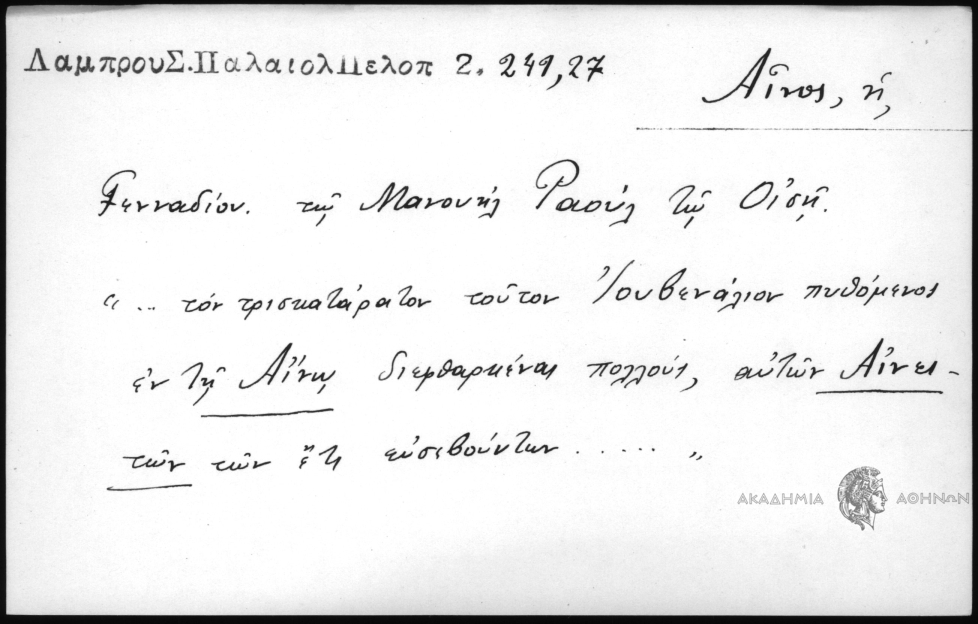 ΛαμπρουΣ.ΠαλαιολΠελοπ 2. 241,27
Αἶνος, ἡ,
Γενναδίου. τῷ Μανουὴλ Ραοὺλ τῷ Οἰσῇ.
"... τόν τρισκατάρατον τοῦτον Ἰουβενάλιον πυθόμενος
ἐν τῇ Αἴνῳ διεφθαρκέναι πολλούς, αὐτῶν Αἰνει-
τῶν τῶν ἔτι εὐσεβούντων ...... "
ΑΚΑΔΗΜΙΑ ΑΘΗΝΩΝ